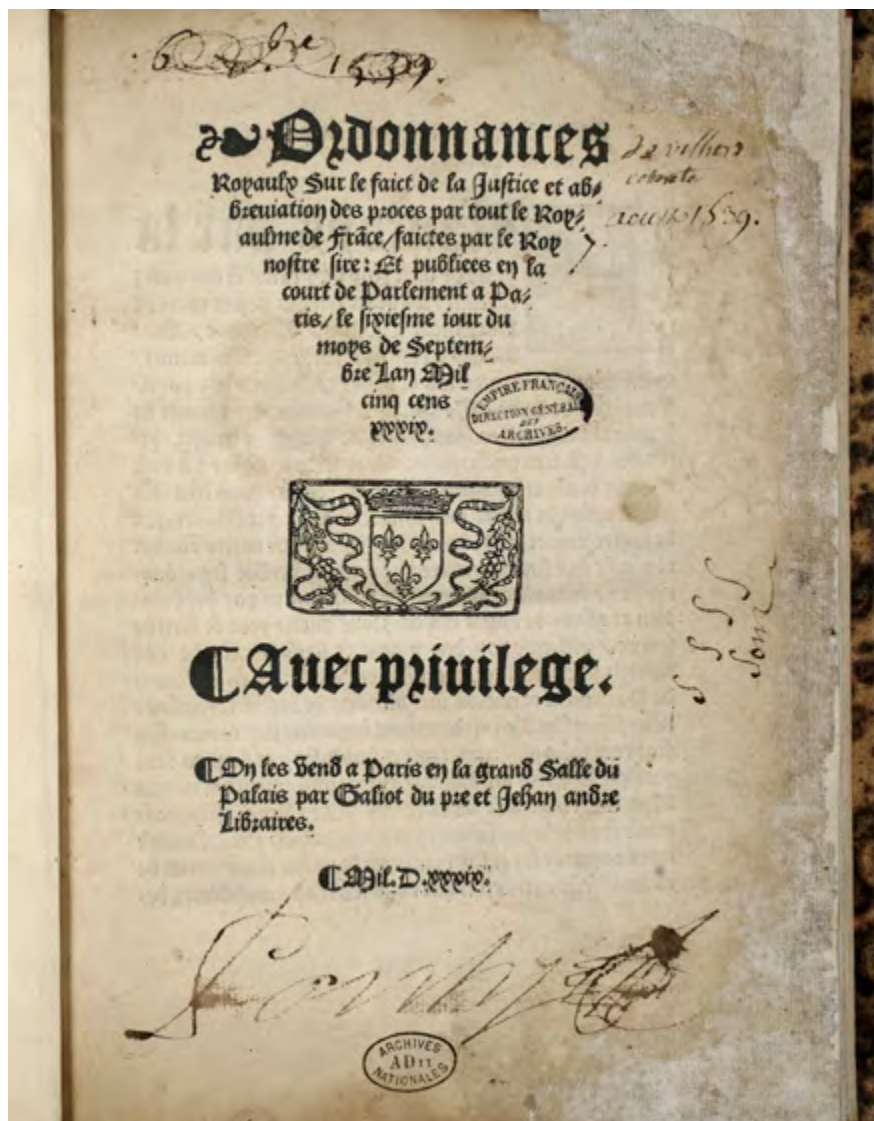 6 bre 1539.
Ordonnances
Royaulx Sur le faict de la Justice et ab⸗
breuiation des proces par tout le Roy⸗
aulme de Frãce/faictes par le Roy
nostre sire: Et publiees en la
court de Parlement a Pa⸗
ris/ le sixiesme iour du
moys de Septem⸗
bre Lan Mil
cinq cens
xxxix.
de villers
aoust 1539.
EMPIRE FRANÇAIS
DIRECTION GÉNÉRALE
DES
ARCHIVES.
¶Auec priuilege.
¶On les vend a Paris en la grand Salle du
Palais par Galiot du pre et Jehan andre
Libraires.
¶Mil. D. xxxix.
ARCHIVES
AD II
NATIONALES